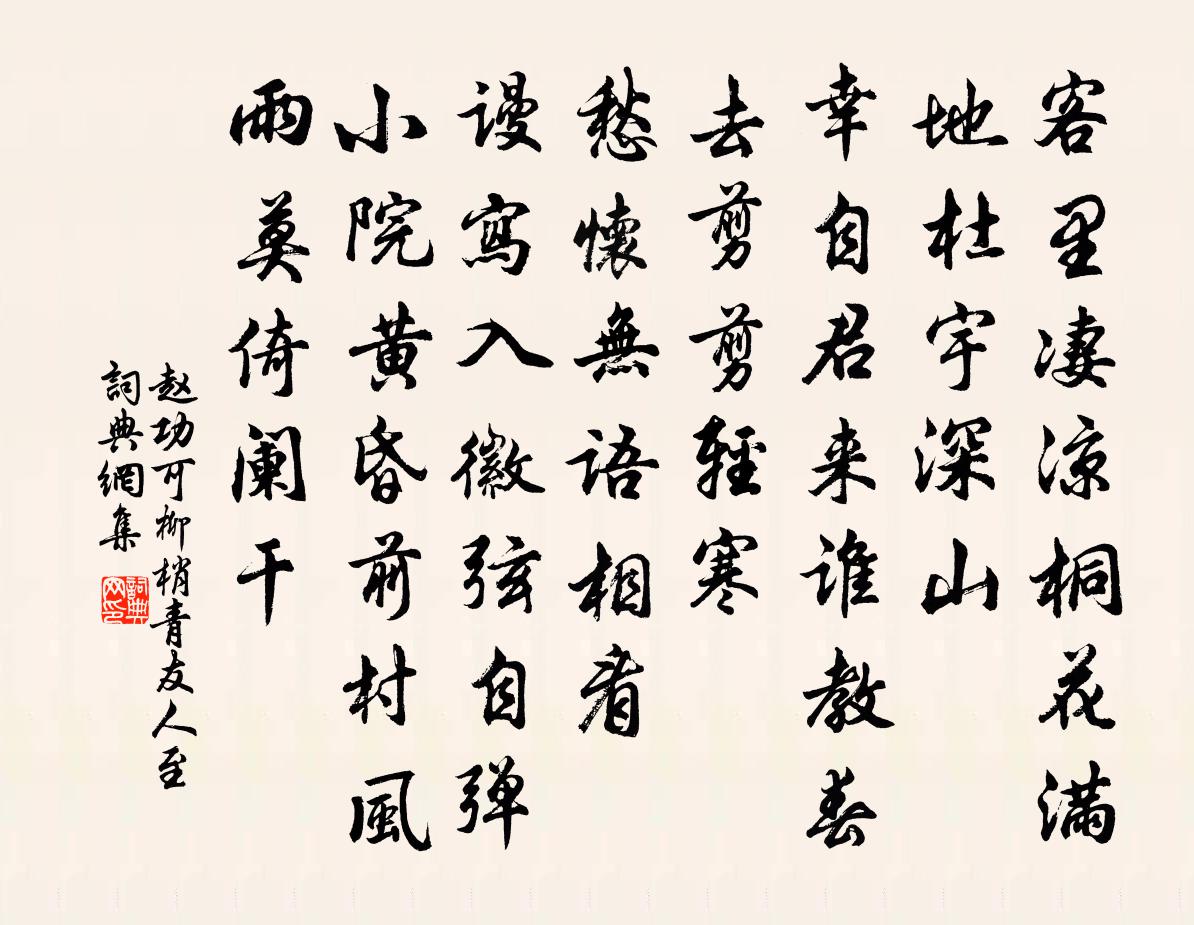 客里凄凉桐花满
地杜宇深山
幸自君来谁教春
去剪剪輕寒
愁懷無语相看
谩寫入徽弦自弹
小院黄昏前村風
雨莫倚阑干
赵功可柳梢青友人至
詞典網集
詞典网印